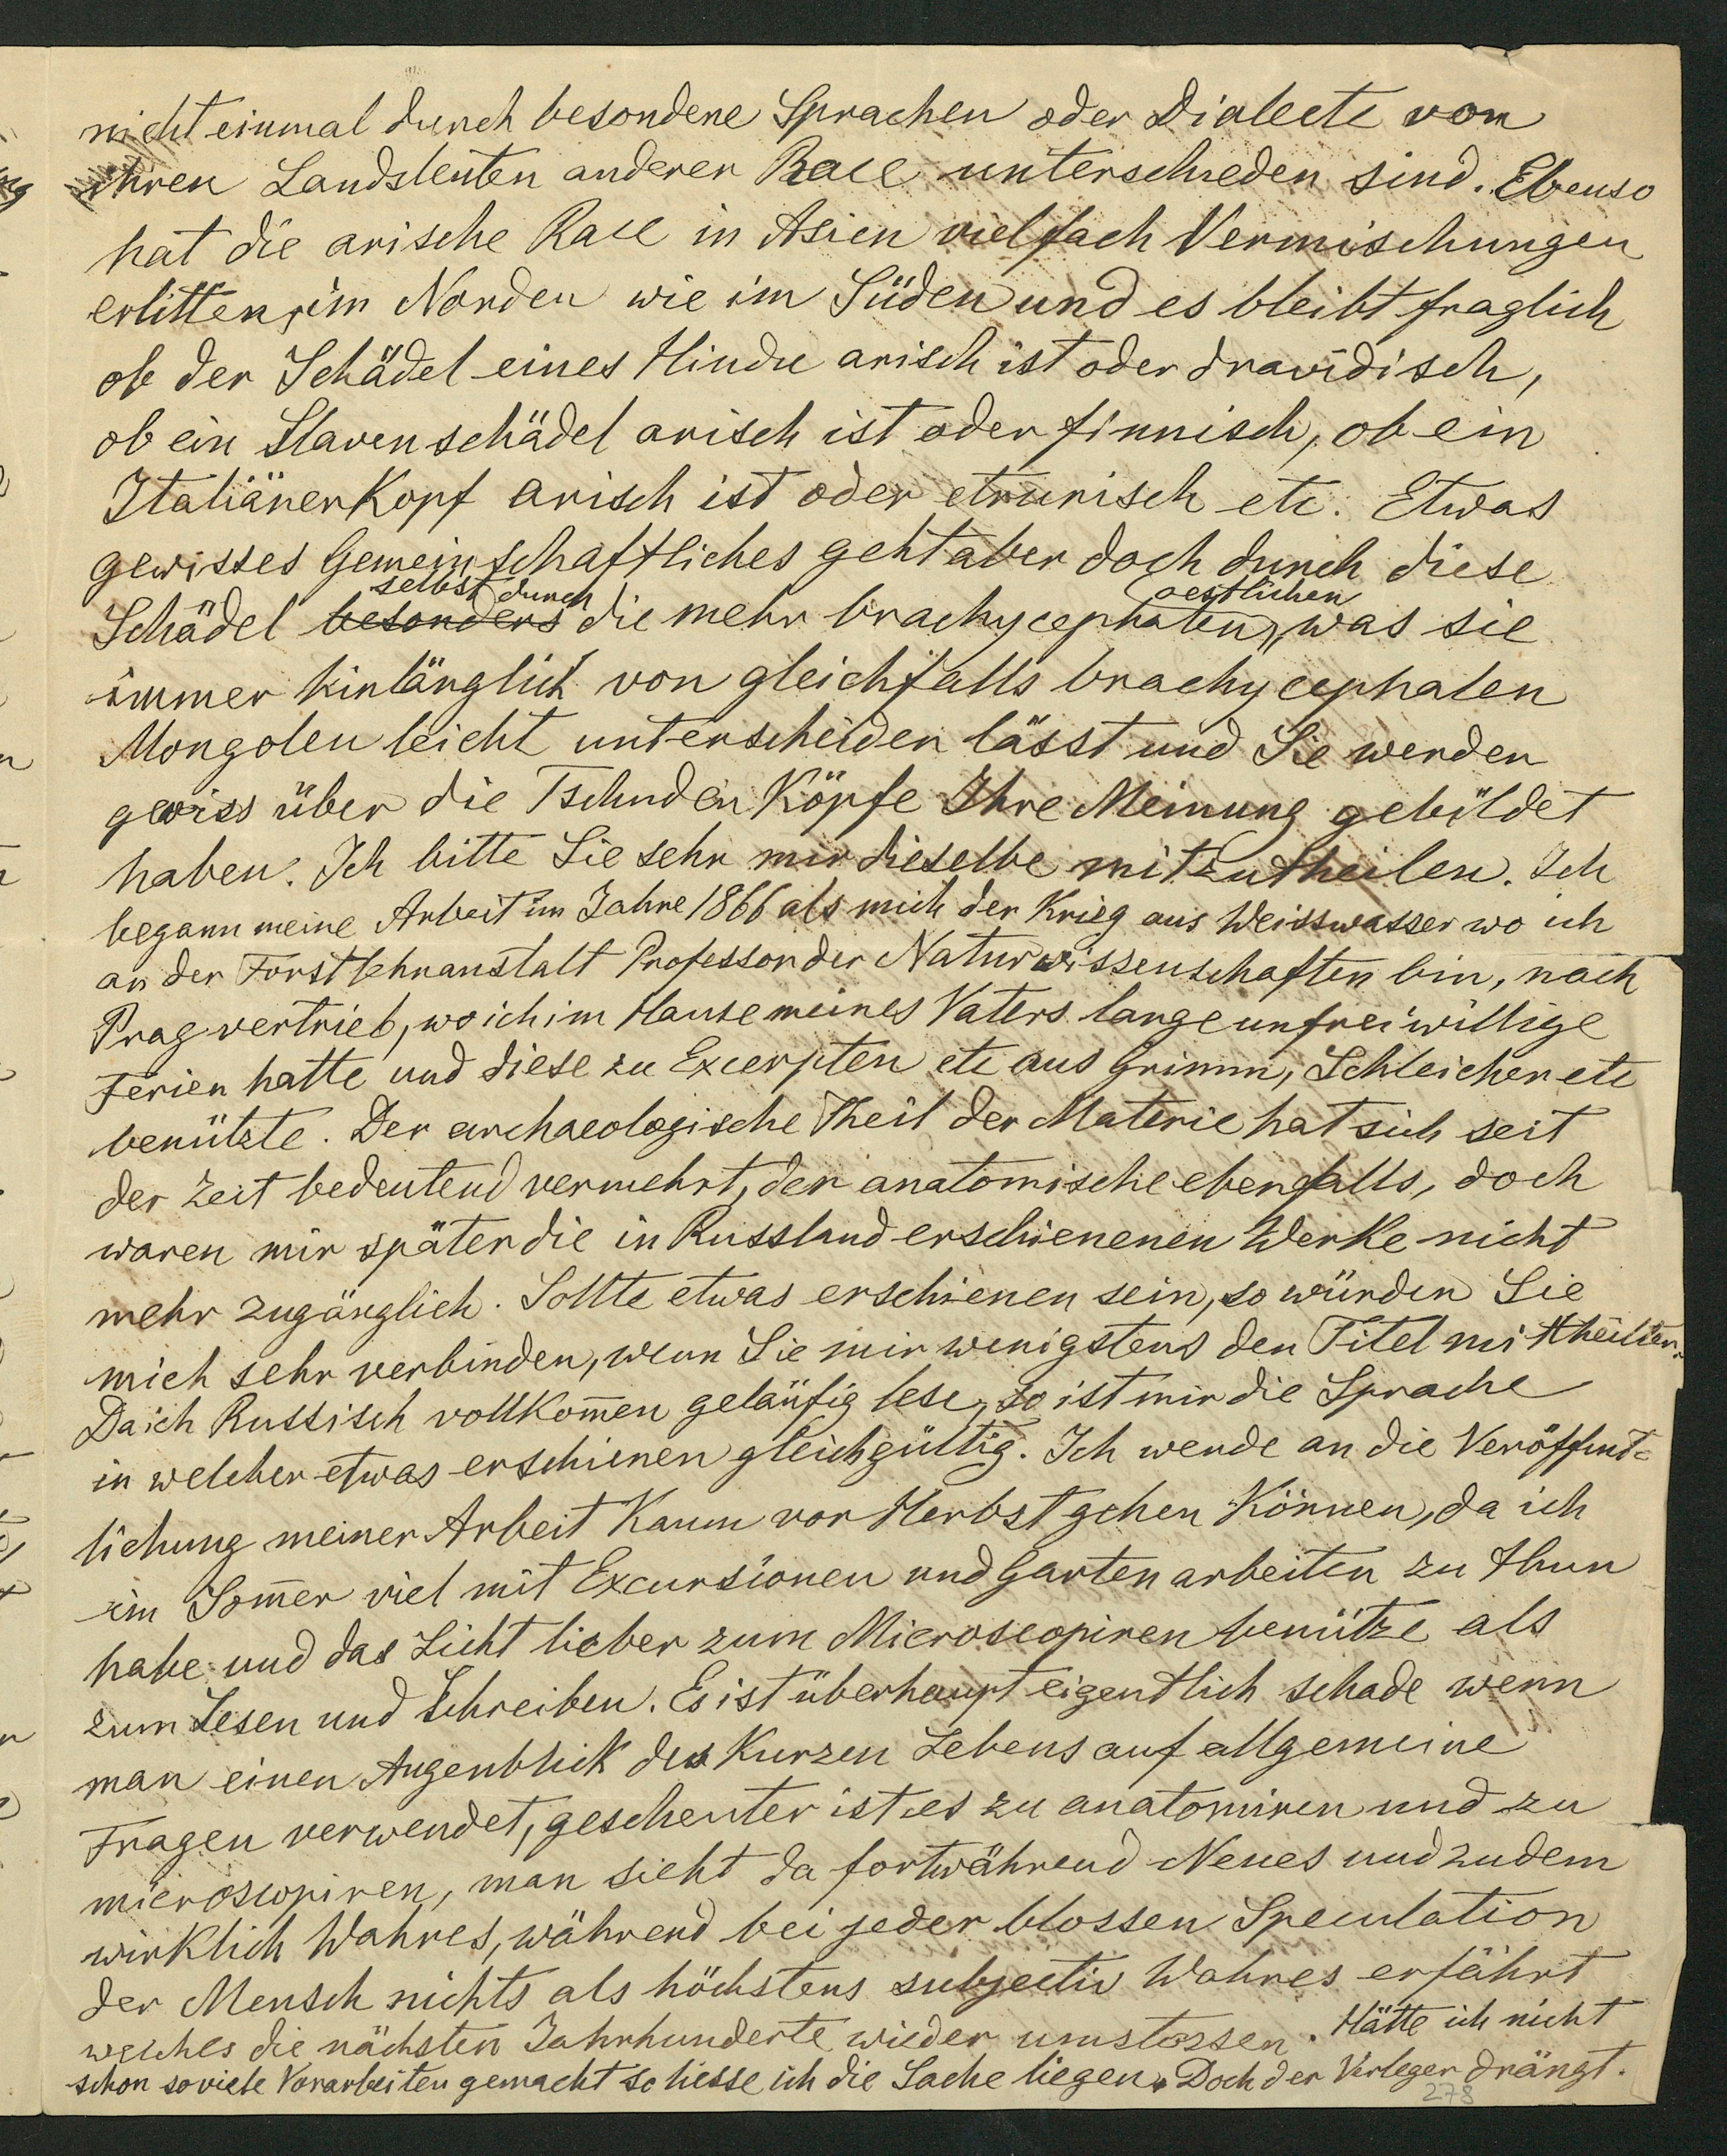 nicht einmal durch besondere Sprachen oder Dialecte von
ihren Landsleuten anderer Race unterschieden sind. Ebenso
hat die arische Race in Asien vielfach Vermischungen
erlitten, im Norden wie im Süden und es bleibt fraglich
ob der Schädel eines Hindu arisch ist oder dravidisch,
ob ein Slavenschädel arisch ist oder finnisch, ob ein
Italiänerkopf arisch ist oder etrurisch etc. Etwas
gewisses Gemeinschaftliches geht aber doch durch diese
selbst durch oestlichen
Schädel besonders die mehr brachycephalen, was sie
immer hinlänglich von gleichfalls brachycephalen
Mongolen leicht unterscheiden lässt und Sie werden
gewiss über die Tschuden Köpfe Ihre Meinung gebildet
haben. Ich bitte Sie sehr mir dieselbe mitzutheilen. Ich
begann meine Arbeit im Jahre 1866 als mich der Krieg aus Weisswasser wo ich
an der Forstlehranstalt Professor der Naturwissenschaften bin, nach
Prag vertrieb, wo ich im Hause meines Vaters lange unfreiwillige
Ferien hatte und diese zu Excerpten etc aus Grimm, Schleicher etc
benützte. Der archaeologische Theil der Materie hat sich seit
der Zeit bedeutend vermehrt, der anatomische ebenfalls, doch
waren mir später die in Russland erschienenen Werke nicht
mehr zugänglich. Sollte etwas erschienen sein, so würden Sie
mich sehr verbinden, wenn Sie mir wenigstens den Titel mittheilten.
Da ich Russisch vollkom̅en geläufig lese, so ist mir die Sprache
in welcher etwas erschienen gleichgültig. Ich werde an die Veröffent=
lichung meiner Arbeit kaum vor Herbst gehen können, da ich
im Som̅er viel mit Excursionen und Gartenarbeiten zu thun
habe und das Licht lieber zum Microscopiren benütze als
zum Lesen und Schreiben. Es ist überhaupt eigentlich schade wenn
man einen Augenblick des kurzen Lebens auf allgemeine
Fragen verwendet, gescheuter ist es zu anatomiren und zu
microscopiren, man sieht da fortwährend Neues und zudem
wirklich Wahres, während bei jeder blossen Speculation
der Mensch nichts als höchstens subjectiv Wahres erfährt
welches die nächsten Jahrhunderte wieder umstossen. Hätte ich nicht
schon soviele Vorarbeiten gemacht so liesse ich die Sache liegen. Doch der Verleger drängt.
278